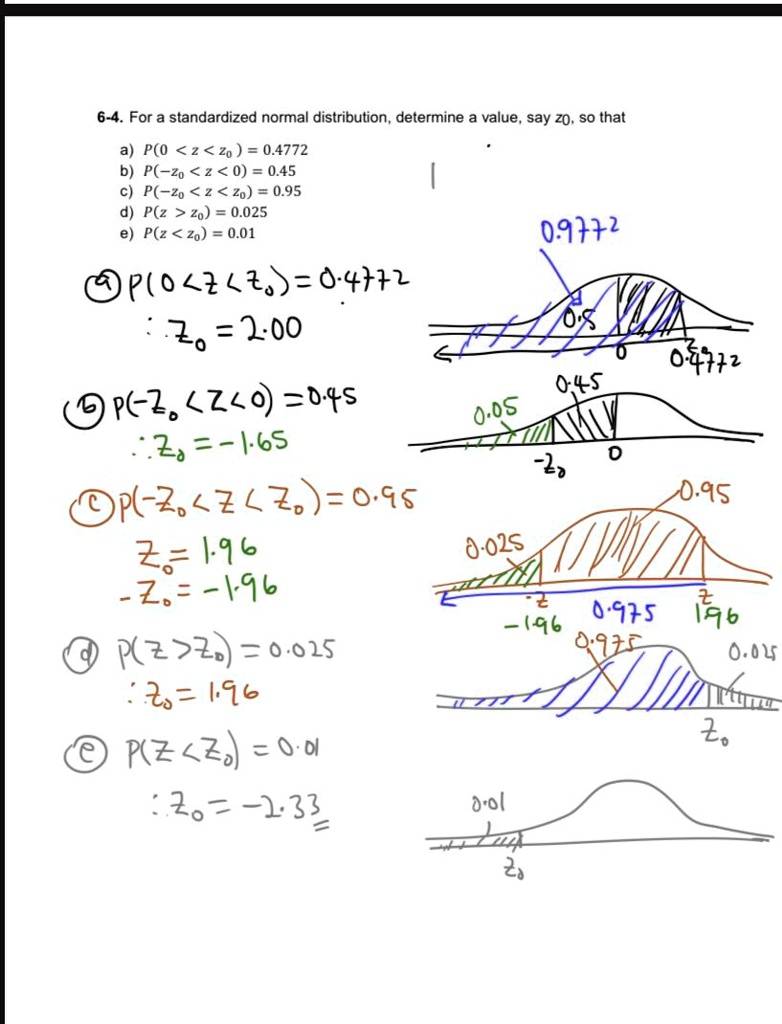 6-4. For a standardized normal distribution, determine a value, say z0, so that
a) P(0 < z < z₀ ) = 0.4772
b) P(−z₀ < z < 0) = 0.45
c) P(−z₀ < z < z₀) = 0.95
d) P(z > z₀) = 0.025
e) P(z < z₀) = 0.01
0.9772
ⓐ P(0<Z<Z₀)=0.4772
0.5
∴ Z₀ = 2.00
0
Z₀
0.4772
ⓑ P(-Z₀<Z<0)=0.45
0.45
0.05
∴ Z₀ = -1.65
-Z₀
0
ⓒ P(-Z₀<Z<Z₀)=0.95
0.95
0.025
Z₀ = 1.96
-Z₀ = -1.96
-Z
Z
-1.96
0.975
1.96
ⓓ P(Z>Z₀)=0.025
0.975
0.025
∴ Z₀ = 1.96
Z₀
ⓔ P(Z<Z₀) = 0.01
∴ Z₀ = -2.33
0.01
Z₀